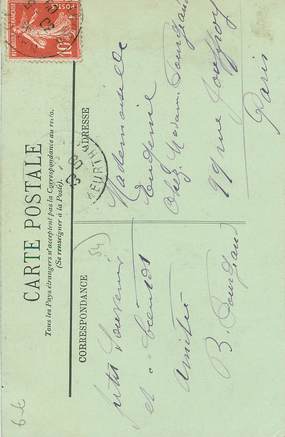 CARTE POSTALE
Tous les Pays étrangers n'acceptent pas la Correspondance au recto.
(Se renseigner à la Poste).
CORRESPONDANCE
ADRESSE
petit Souvenir
et à bientôt
Amitiés
B. Bourgeaux
Mademoiselle
Eugénie
chez Madame
99 rue Jouffroy
Paris
10
POSTES
MEURTHE